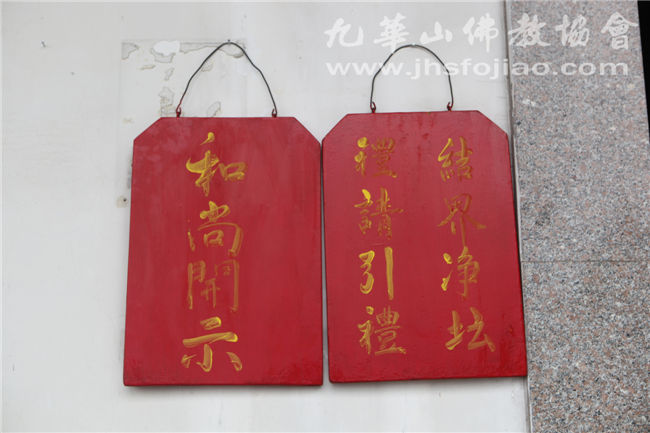 九華山佛教協會
www.jhsfojiao.com
結界净坛
禮請引禮
和尚開示